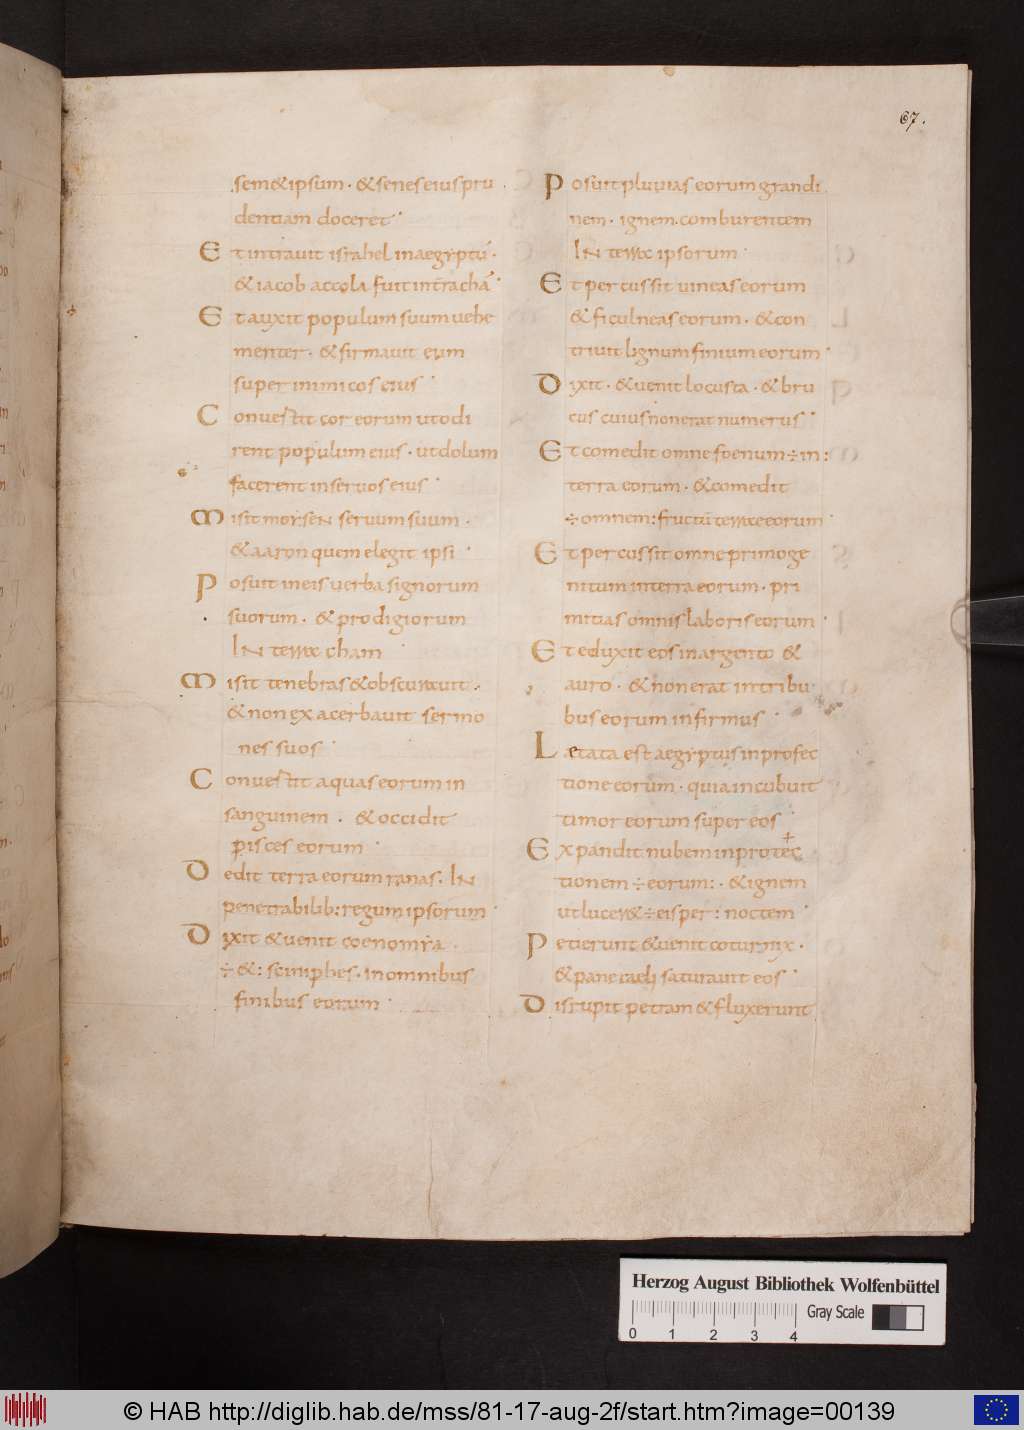 67.
sem & ipsum · & senes eius pru
dentiam doceret ·
Et intrauit israhel in aegyptū ·
& iacob accola fuit in terra chā ·
Et auxit populum suum uehe
menter · & firmauit eum
super inimicos eius ·
Conuertit cor eorum ut odi
rent populum eius · ut dolum
facerent in seruos eius ·
Misit moysen seruum suum ·
& aaron quem elegit ipsi ·
Posuit in eis uerba signorum
suorum · & prodigiorum
IN terra cham ·
Misit tenebras & obscurauit ·
& non exacerbauit sermo
nes suos ·
Conuertit aquas eorum in
sanguinem · & occidit
pisces eorum ·
Dedit terra eorum ranas · IN
penetrabilib: regum ipsorum ·
Dixit & uenit coenomya ·
÷ & : sciniphes · in omnibus
finibus eorum ·
Posuit pluuias eorum grandi
nem · ignem comburentem
IN terra ipsorum ·
Et percussit uineas eorum
& ficulneas eorum · & con
triuit lignum finium eorum ·
Dixit · & uenit locusta · & bru
cus cuius non erat numerus ·
Et comedit omne foenum ÷ in :
terra eorum · & comedit
÷ omnem : fructū terrae eorum ·
Et percussit omne primoge
nitum in terra eorum · pri
mitias omnis laboris eorum ·
Et eduxit eos in argento &
auro · & non erat in tribu
bus eorum infirmus ·
Laetata est aegyptus in profec
tione eorum · quia incubuit
timor eorum super eos ·
Expandit nubem in protec
tionem ÷ eorum : · & ignem
ut luceret ÷ eis per : noctem ·
Petierunt & uenit coturnix ·
& pane caeli saturauit eos ·
Disrupit petram & fluxerunt
Herzog August Bibliothek Wolfenbüttel
Gray Scale
0 1 2 3 4
© HAB http://diglib.hab.de/mss/81-17-aug-2f/start.htm?image=00139